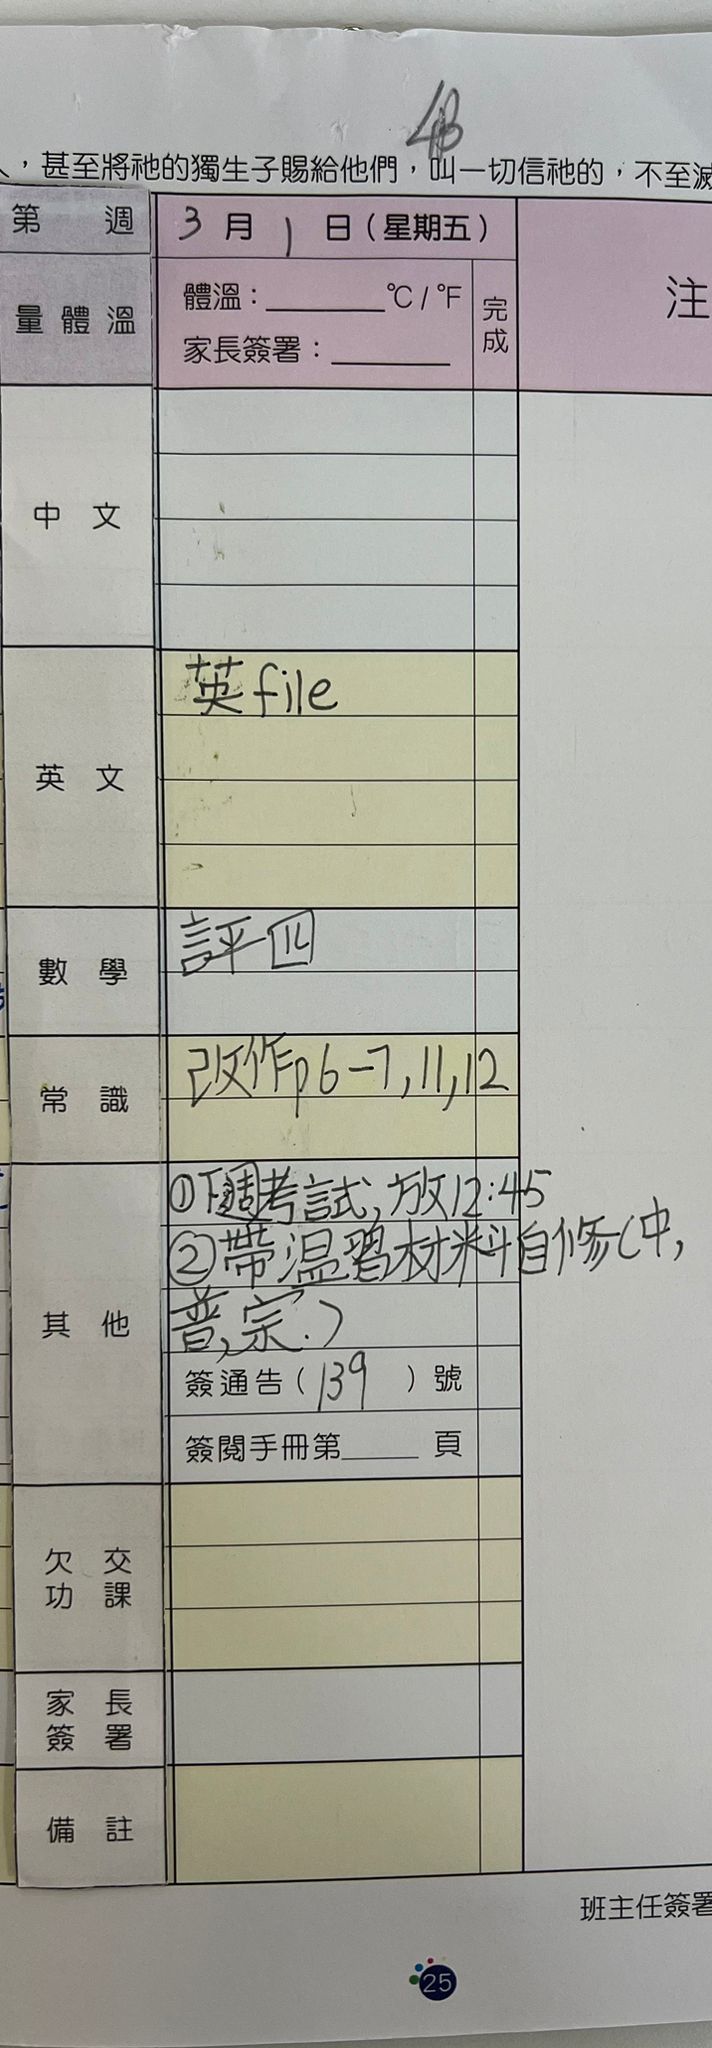 4B
，甚至將祂的獨生子賜給他們，叫一切信祂的，不至滅
第 週
3月1日（星期五）
量體溫
體溫：______℃/℉
家長簽署：______
完成
注
中文
英文
英file
數學
評四
常識
改作p6-7,11,12
其他
①下週考試,放12:45
②帶温習材料自修(中,
普,宗.)
簽通告（139）號
簽閱手冊第____頁
欠交
功課
家長
簽署
備註
班主任簽署
25